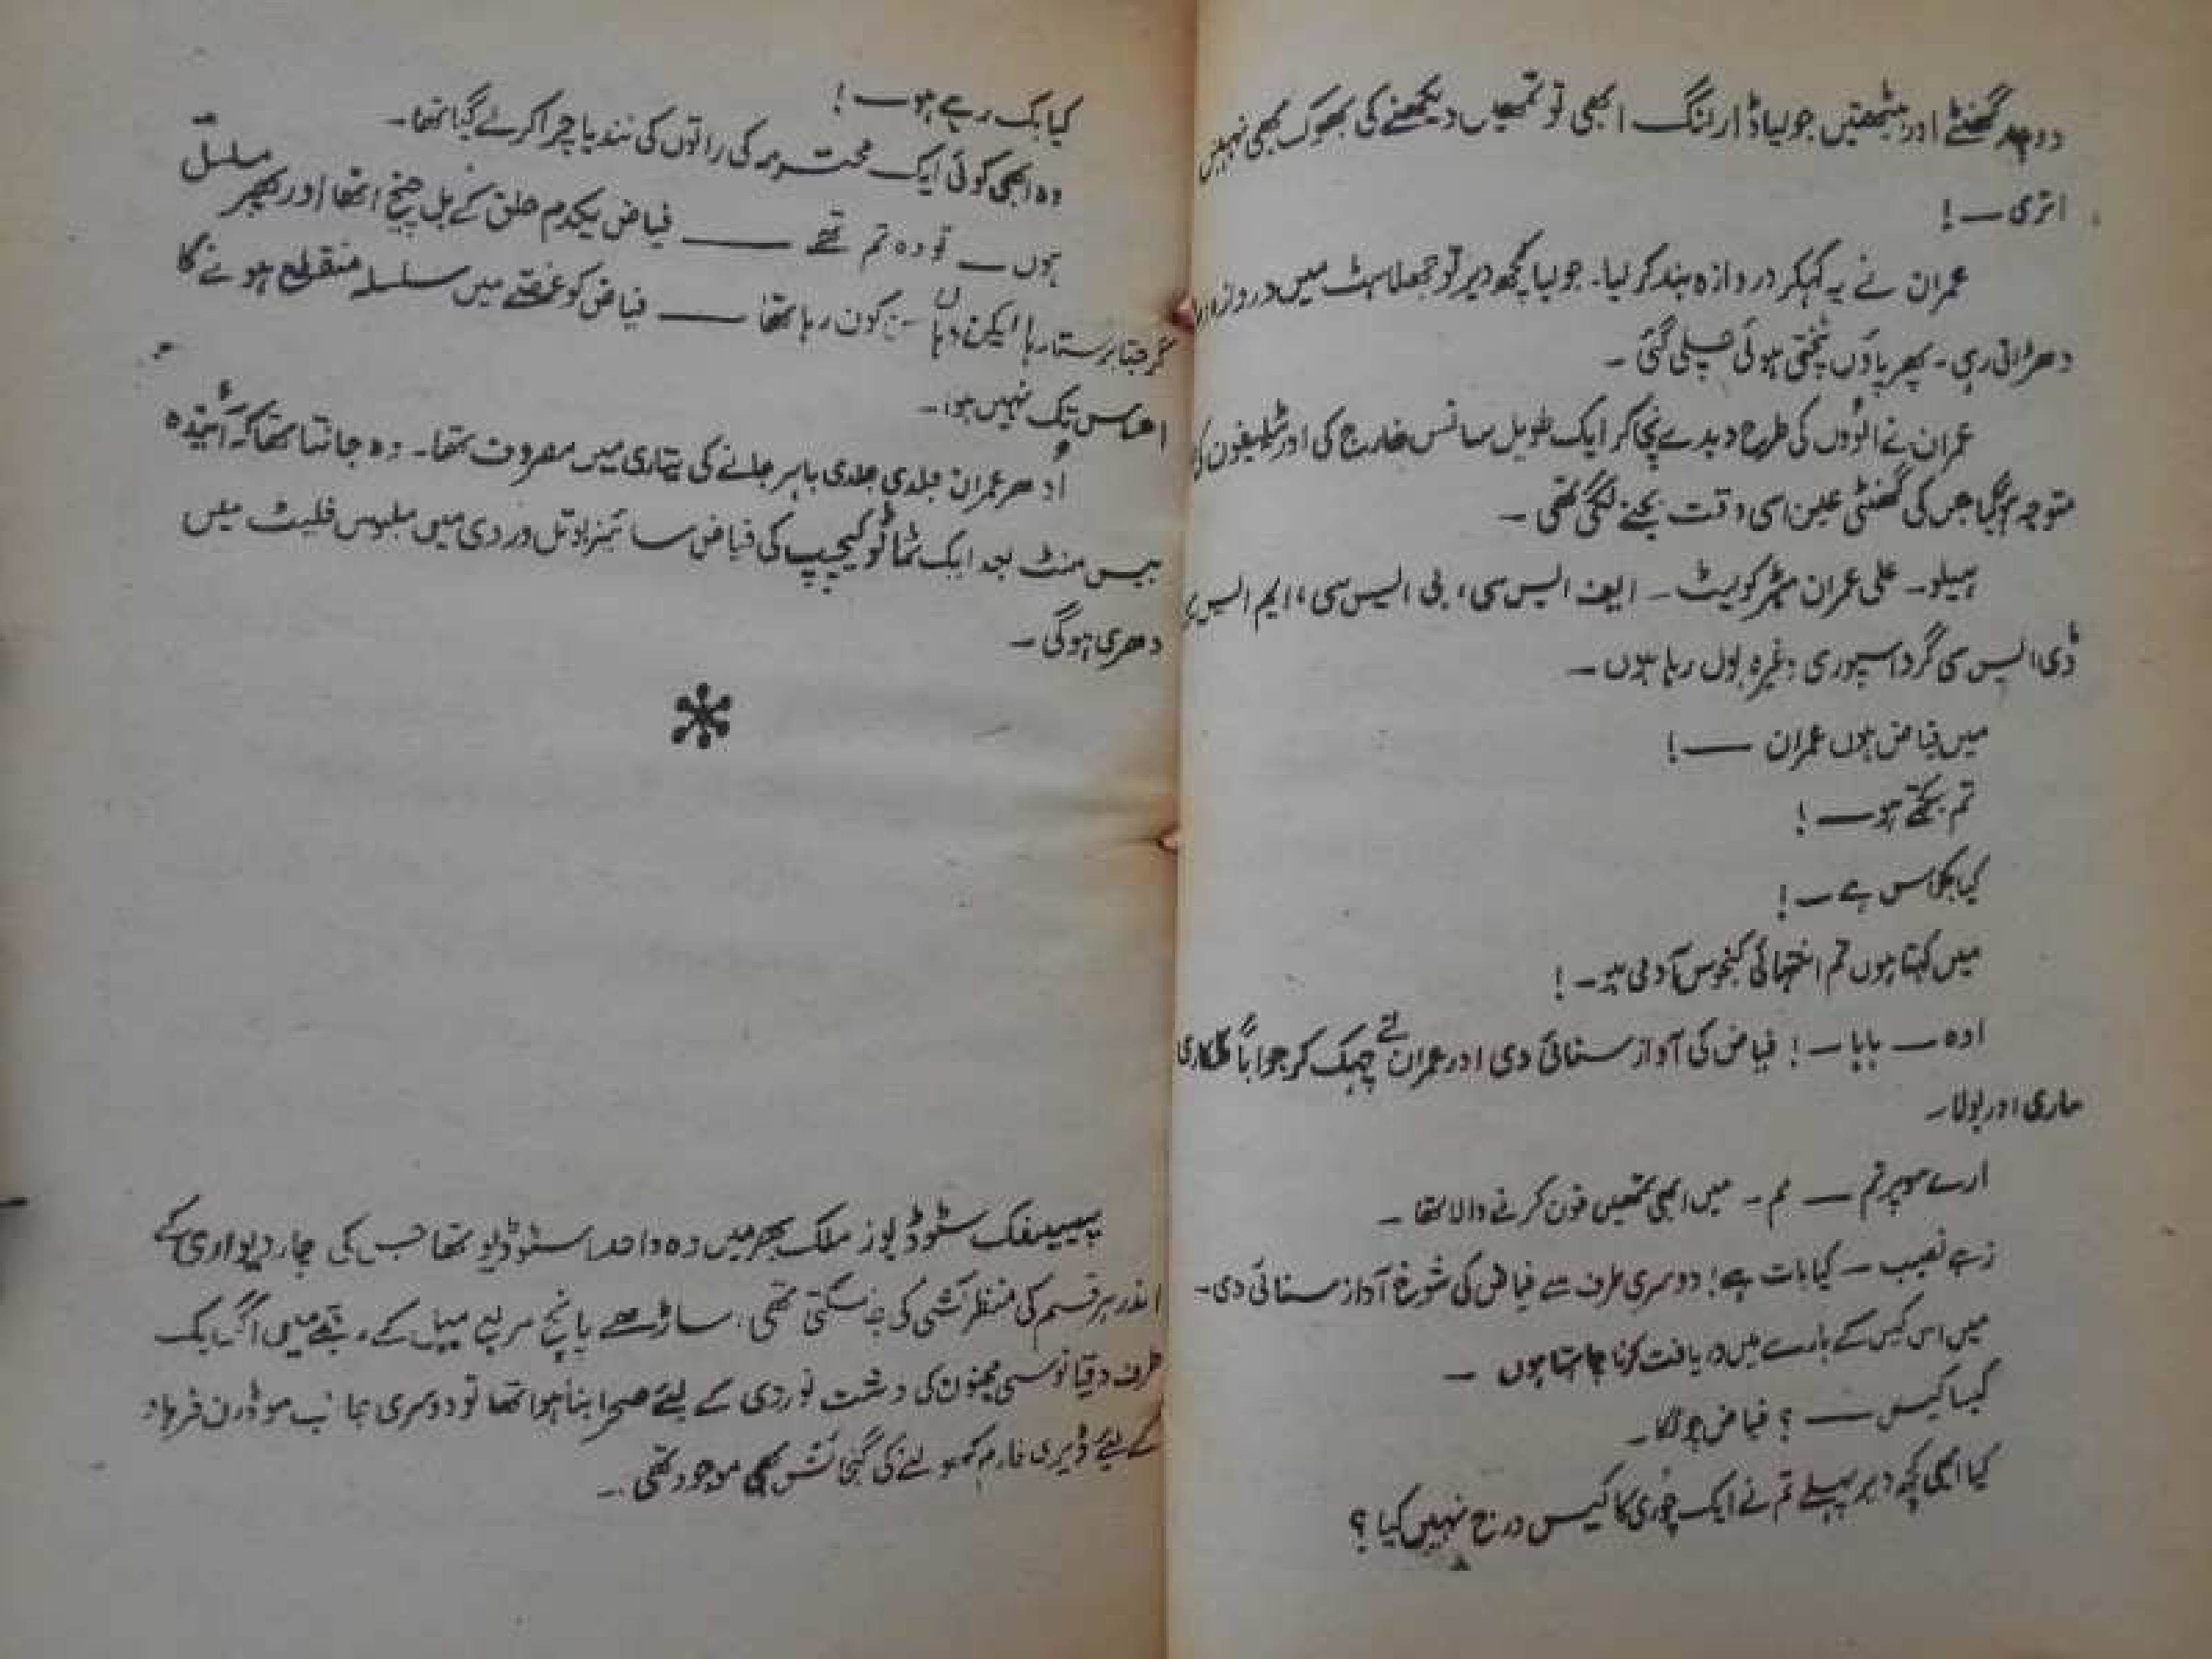 دوچار گھنٹے اور بیٹھتیں جولیا ڈارلنگ ابھی تو تمہیں دیکھنے کی بھوک بھی نہیں
اتری — !
عمران نے یہ کہکر دروازہ بند کر لیا۔ جولیا کچھ دیر تو جھلاہٹ میں دروازہ
دھڑاتی رہی۔ پھر پاؤں پٹختی ہوئی چلی گئی ۔
عمران نے الوؤں کی طرح دیدے نچا کر ایک طویل سانس خارج کی اور ٹیلیفون کی
متوجہ ہوگیا جس کی گھنٹی عین اسی وقت بجنے لگی تھی ۔
ہیلو۔ علی عمران میٹرکولیٹ ۔ ایف ایس سی، بی ایس سی، ایم ایس سی
ڈی ایس سی گرداسپوری وغیرہ بول رہا ہوں ۔
میں فیاض ہوں عمران — !
تم بکتے ہو — !
کیا بکواس ہے — !
میں کہتا ہوں تم انتہائی کنجوس آدمی ہو ۔ !
اوہ — بابا — ! فیاض کی آواز سنائی دی اور عمران نے چہک کر جواباً کلکاری
ماری اور بولا ۔
ارے سوپر تم — تم ۔ میں ابھی تمھیں فون کرنے والا تھا ۔
زہے نصیب — کیا بات ہے! دوسری طرف سے فیاض کی شوخ آواز سنائی دی ۔
میں اس کیس کے بارے میں دریافت کرنا چاہتا ہوں ۔
کیسا کیس — ؟ فیاض بولا۔
کیا ابھی کچھ دیر پہلے تم نے ایک چوری کا کیس درج نہیں کیا ؟
کیا بک رہے ہو — !
وہ ابھی کوئی ایک محترمہ کی راتوں کی نندیا چرا کر لے گیا تھا۔
ہوں — تو وہ تم تھے — فیاض یکدم حلق کے بل چیخ اٹھا اور پھر مسلسل
گرجتا برستا رہا لیکن وہاں سن کون رہا تھا — فیاض کو غصے میں سلسلہ منقطع ہونے کا
احساس تک نہیں ہوا۔
اُدھر عمران جلدی جلدی باہر جانے کی تیاری میں مصروف تھا۔ وہ جانتا تھا کہ آئیندہ
بیس منٹ بعد ایک ٹماٹو کیچپ کی فیاض سائیز بوتل وردی میں ملبوس فلیٹ میں
دھری ہوگی ۔
پیسیفک سٹوڈیوز ملک بھر میں وہ واحد اسٹوڈیو تھا جس کی چاردیواری کے
اندر ہر قسم کی منظر کشی کی جاسکتی تھی، ساڑھے پانچ مربع میل کے رقبے میں اگر ایک
طرف دقیانوسی مجنون کی دشت نوردی کے لئے صحرا بنا ہوا تھا تو دوسری جانب موڈرن فرہاد
کے لیئے ڈیری فارم کھولنے کی گنجائش بھی موجود تھی ۔